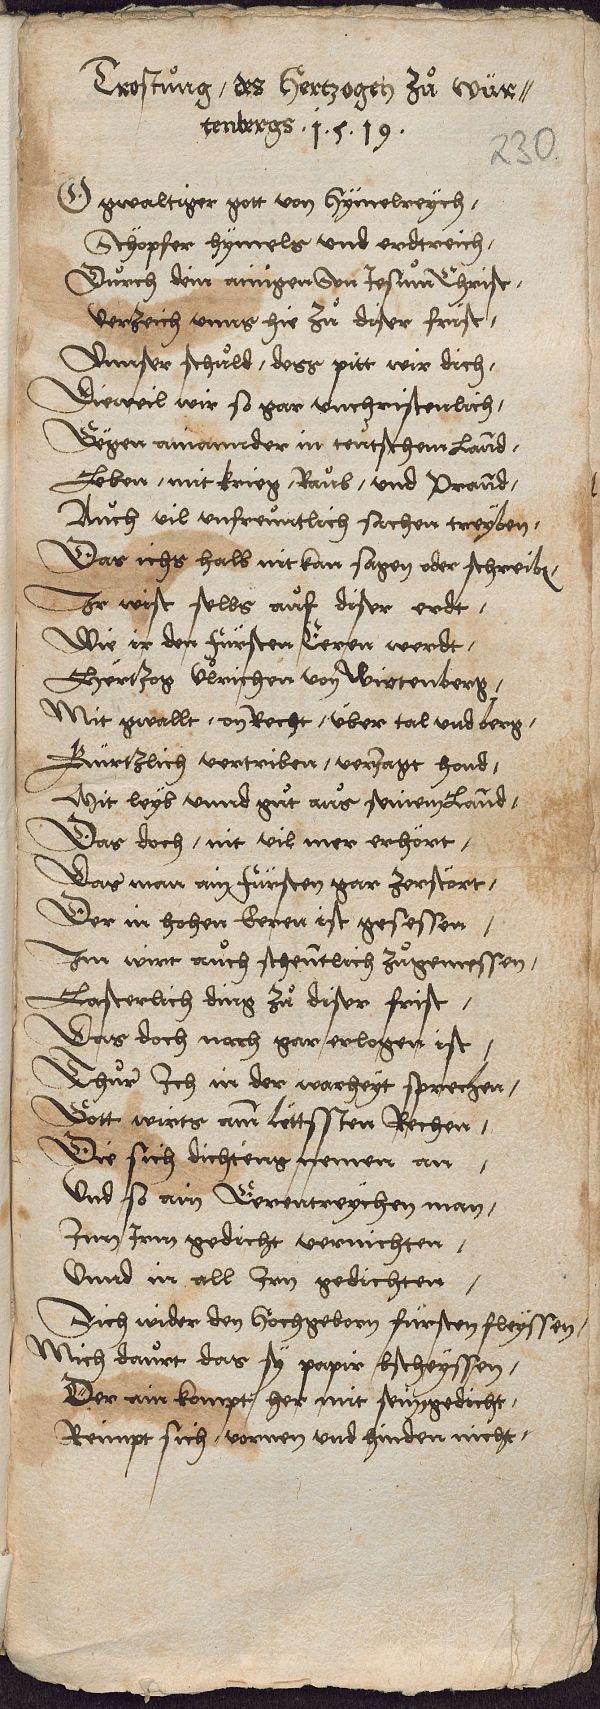 Trostung / des Hertzogen Zů Wür//
tenbergs . 1 . 5 . 19 .
230
O gwaltiger gott von Hÿmelreÿch /
Schöpfer hÿmels vnd erdtreich /
Durch dein ainigen Son Jesum Christ /
Verzeich vnns hie Zů diser frist /
Vnnser schuld / dess pitt wir dich /
Dieweil wir so gar vnchristenlich /
Gegen ainannder in teutschem Land /
Leben / mit krieg / Raub / vnd Prannd /
Auch vil vnfreuntlich sachen treÿben /
Das ichs halb nit kan sagen oder schreiben /
Ir wist selbs auf diser erdt /
Wie ir den fürsten Eeren werdt /
Hertzog Vlrichen von Wirtenberg /
Mit gwallt / on Recht / über tal vnd berg /
Kürtzlich vertriben / veriagt hond /
Mit leÿb vnnd gut aus seinem Land /
Das doch / nit vil mer erhört /
Das man ain fürsten gar Zerstört /
Der in hohen Eeren ist gesessen /
Im wirt auch schentlich Zůgemessen /
Lasterlich ding Zů diser frist /
Das doch noch gar erlogen ist /
Thur Ich in der warheÿt sprechen /
Gott wirts am lettssten Rechen /
Die sich dichtens nemen an /
Vnd so ain Eerentreÿchen man /
Inn Irm gedicht vernichten /
Vnnd in all Irn gedichten /
Sich wider den Hochgeborn fürsten fleÿssen /
Mich daurt das sÿ papir bscheÿssen /
Der ain kompt her mit seim gedicht /
Reimpt sich / vornen vnd hinden nicht /